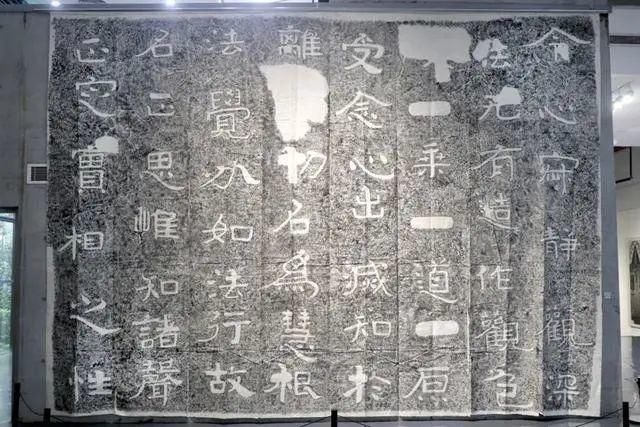 令心寂静觀深
法无有造作觀色
一乘一道一原
受念心出滅知於
離切名爲慧根
法覺分如法行故
名正思惟知諸聲
正定實相之性